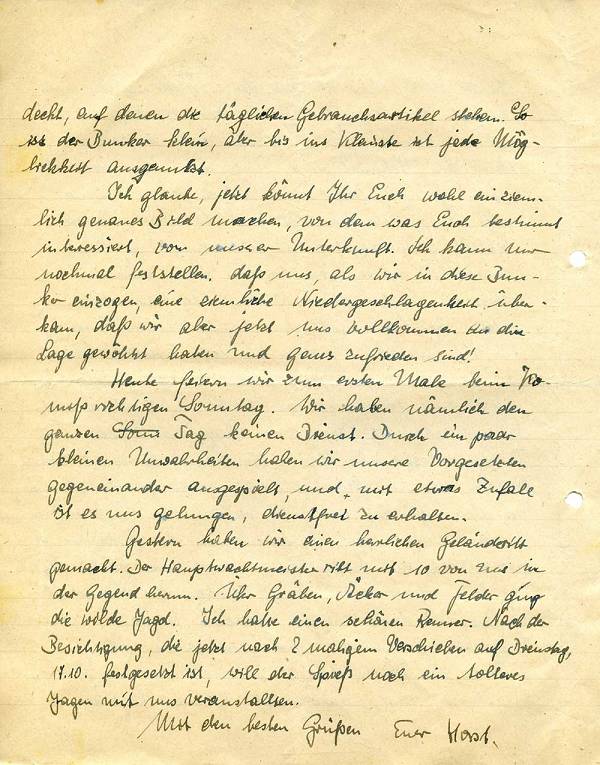 deckt, auf denen die täglichen Gebrauchsartikel stehen. So
ist der Bunker klein, aber bis ins Kleinste ist jede Mög-
lichkeit ausgenutzt.
Ich glaube, jetzt könnt Ihr Euch wohl ein ziem-
lich genaues Bild machen, von dem was Euch bestimmt
interessiert, von unserer Unterkunft. Ich kann nur
nochmal feststellen, daß uns, als wir in diese Bun-
ker einzogen, eine ziemliche Niedergeschlagenheit über-
kam, daß wir aber jetzt uns vollkommen an die
Lage gewöhnt haben und ganz zufrieden sind!
Heute feiern wir zum ersten Male beim Ko-
muß richtigen Sonntag. Wir haben nämlich den
ganzen Sonn Tag keinen Dienst. Durch ein paar
kleinen Unwahrheiten haben wir unsere Vorgesetzten
gegeneinander ausgespielt, und mit etwas Zufall
ist es uns gelungen, dienstfrei zu erhalten.
Gestern haben wir einen herrlichen Geländeritt
gemacht. Der Hauptwachtmeister ritt mit 10 von uns in
der Gegend herum. Über Gräben, Äcker und Felder ging
die wilde Jagd. Ich hatte einen schönen Renner. Nach der
Besichtigung, die jetzt nach 2 maligem Verschieben auf Dienstag,
17.10. festgesetzt ist, will der Spieß noch ein tolleres
Jagen mit uns veranstallten.
Mit den besten Grüßen Euer Horst.